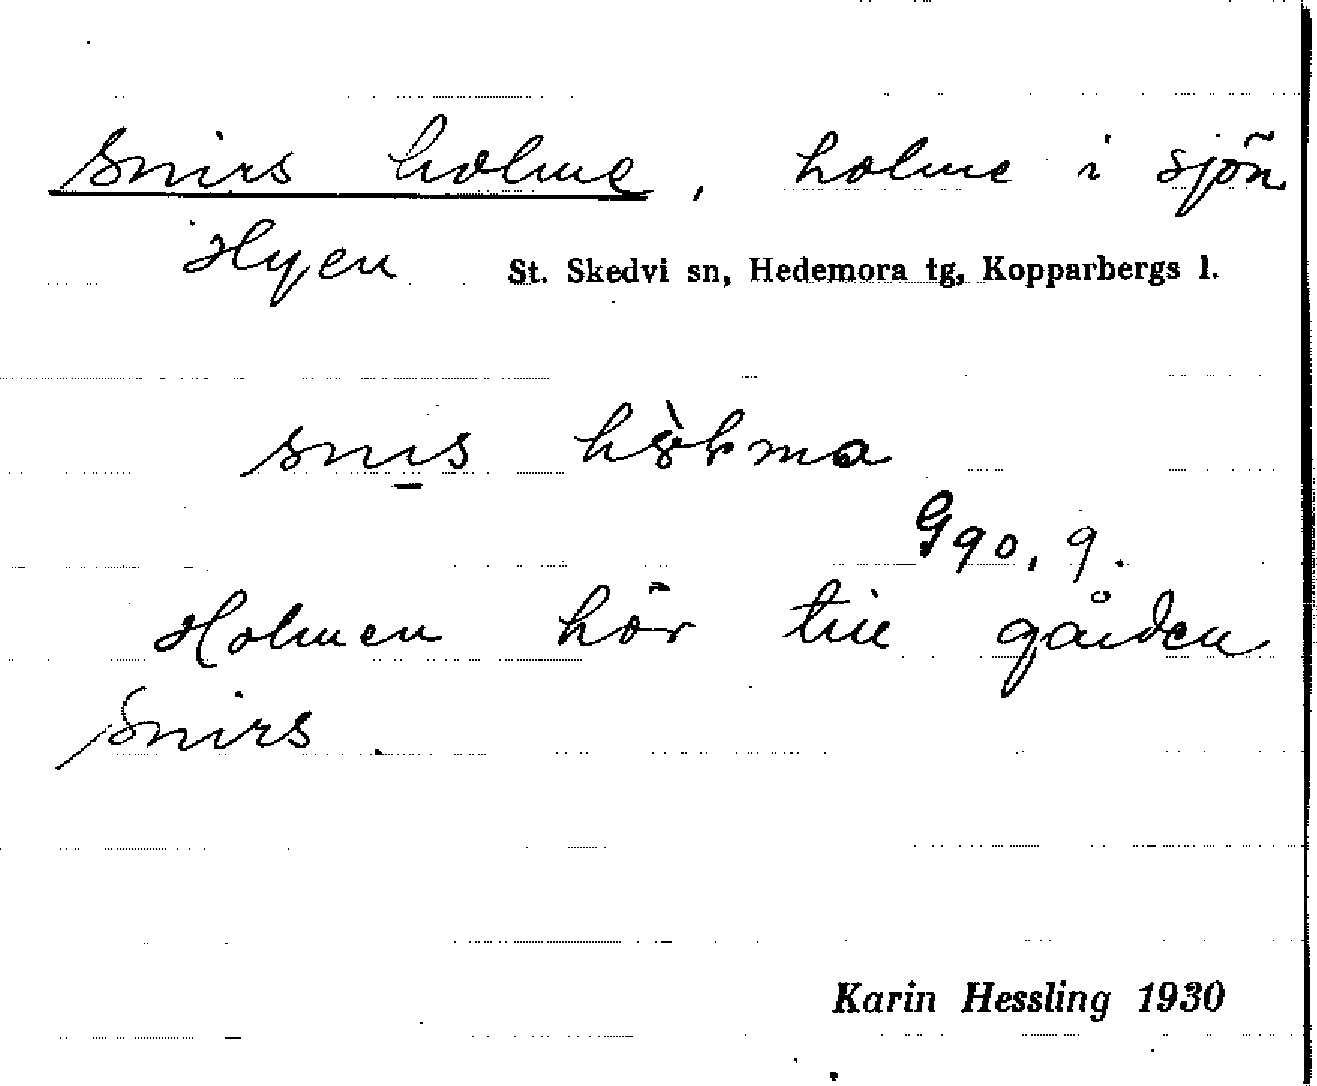 Snirs holme, holme i sjön
Hyen St. Skedvi sn, Hedemora tg, Kopparbergs l.
snis
Holmen hör till gården
Snirs.
Karin Hessling 1930